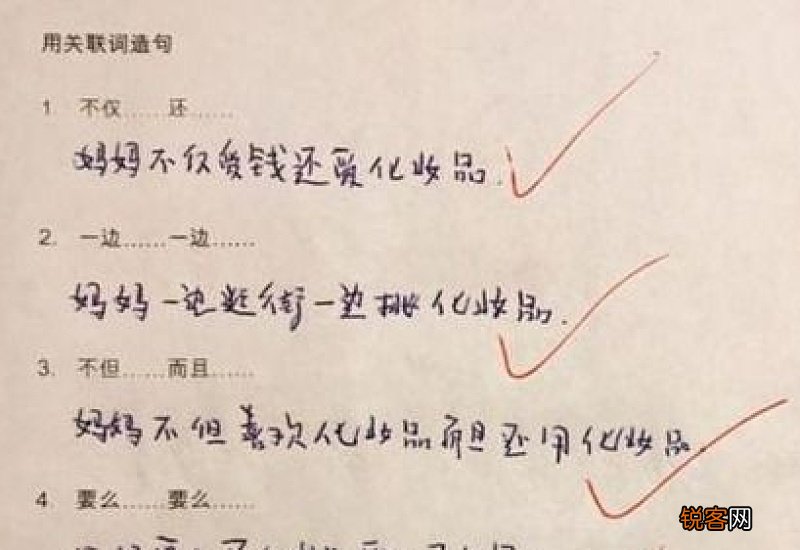 用关联词造句
1 不仅……还……
妈妈不仅爱钱还爱化妆品.
2. 一边……一边……
妈妈一边逛街一边挑化妆品.
3. 不但……而且……
妈妈不但喜欢化妆品而且还用化妆品.
4. 要么……要么……
锐客网